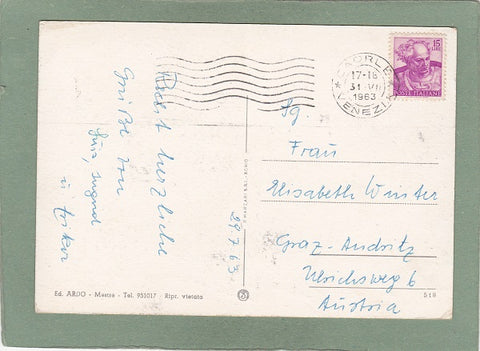 Recht herzliche
Grüße von
29.7.63
Ed. ARDO - Mestre - Tel. 951017 - Ripr. vietata
CAORLE
17-18
31-VII
1963
VENEZIA
15
POSTE ITALIANE
Sg.
Frau
Elisabeth Winter
Graz-Andritz
Ulrichsweg 6
Austria